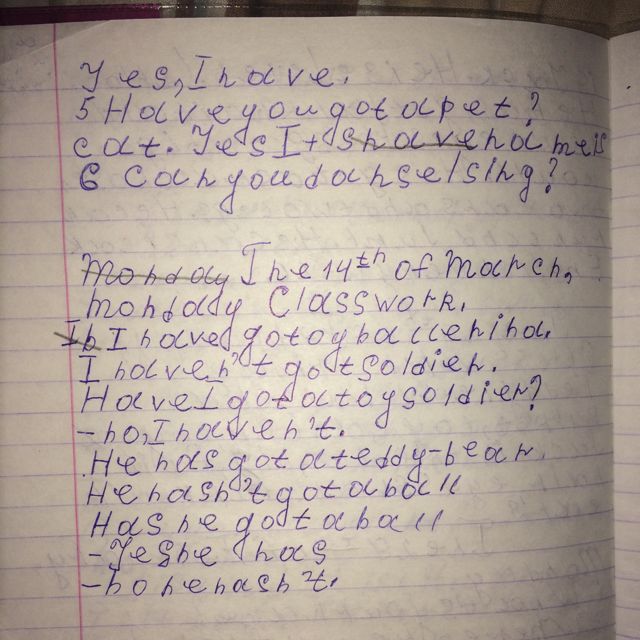 Yes, I have.
5 Have you got a pet?
cat. Yes It's have name is
6 Can you danse/sing?
Monday The 14th of March,
Monday Classwork.
I I have got a toy ballerina.
I haven't got soldier.
Have I got a toy soldier?
- no, I haven't.
He has got a teddy-bear.
He hasn't got a ball
Has he got a ball
- Yes he has
- no he hasn't.